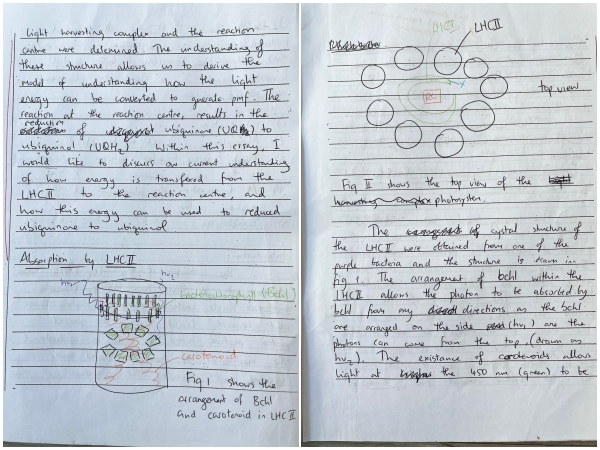 light harvesting complex and the reaction
centre were determined. The understanding of
these structure allows us to derive the
model of understanding how the light
energy can be converted to generate pmf. The
reaction at the reaction centre, results in the
reduction
of ubiquinone (UQ) to
ubiquinol (UQH2). Within this essay, I
would like to discuss our current understanding
of how energy is transfered from the
LHCII to the reaction centre, and
how this energy can be used to reduced
ubiquinone to ubiquinol
Absorption by LHCII
hv2
hv1
bacteriochlorophyll (Bchl)
carotenoid
Fig 1 shows the
arrangement of Bchl
and carotenoid in LHCII
LHCI
LHCII
RC
top view
Fig II shows the top view of the
photosystem.
The crystal structure of
the LHCII were obtained from one of the
purple bacteria and the structure is drawn in
fig 1. The arrangement of bchl within the
LHCII allows the photon to be absorbed by
bchl from any directions as the bchl
are arranged on the side (hv1) are the
photons can come from the top (drawn as
hv2). The existance of carotenoids allows
light at the 450 nm (green) to be